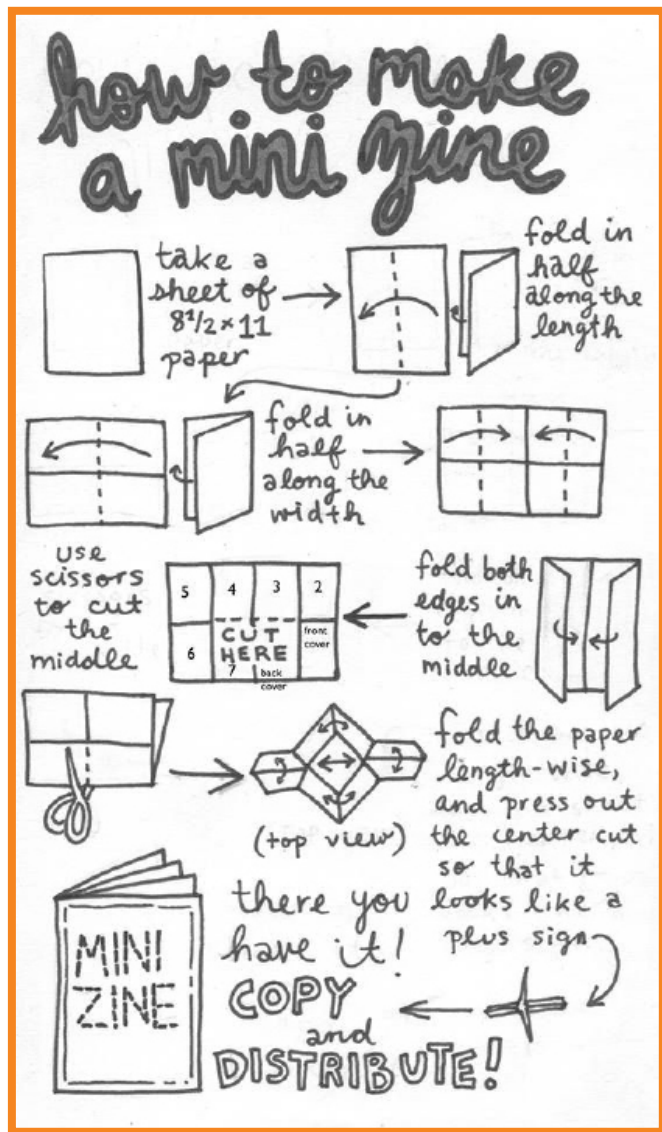 how to make
a mini zine
take a
sheet of
8 1/2 x 11
paper
fold in
half
along the
length
fold in
half
along the
width
fold both
edges in
to the
middle
5 4 3 2
CUT
HERE
front
cover
6
7
back
cover
use
scissors
to cut
the
middle
fold the paper
length-wise,
and press out
the center cut
so that it
looks like a
plus sign
(top view)
there you
have it!
COPY
and
DISTRIBUTE!
MINI
ZINE